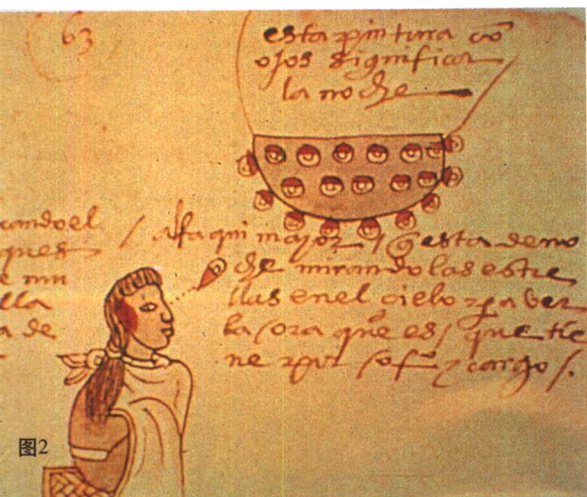 63
esta pintura cõ
ojos significar
la noche
candoel
ques
e mu
lla
a de
/ alfaqui mayor / q̃ esta deno
che mirando las estre
llas enel cielo para ver
la ora que es / que tie
ne por / sofiº y cargo /.
图2